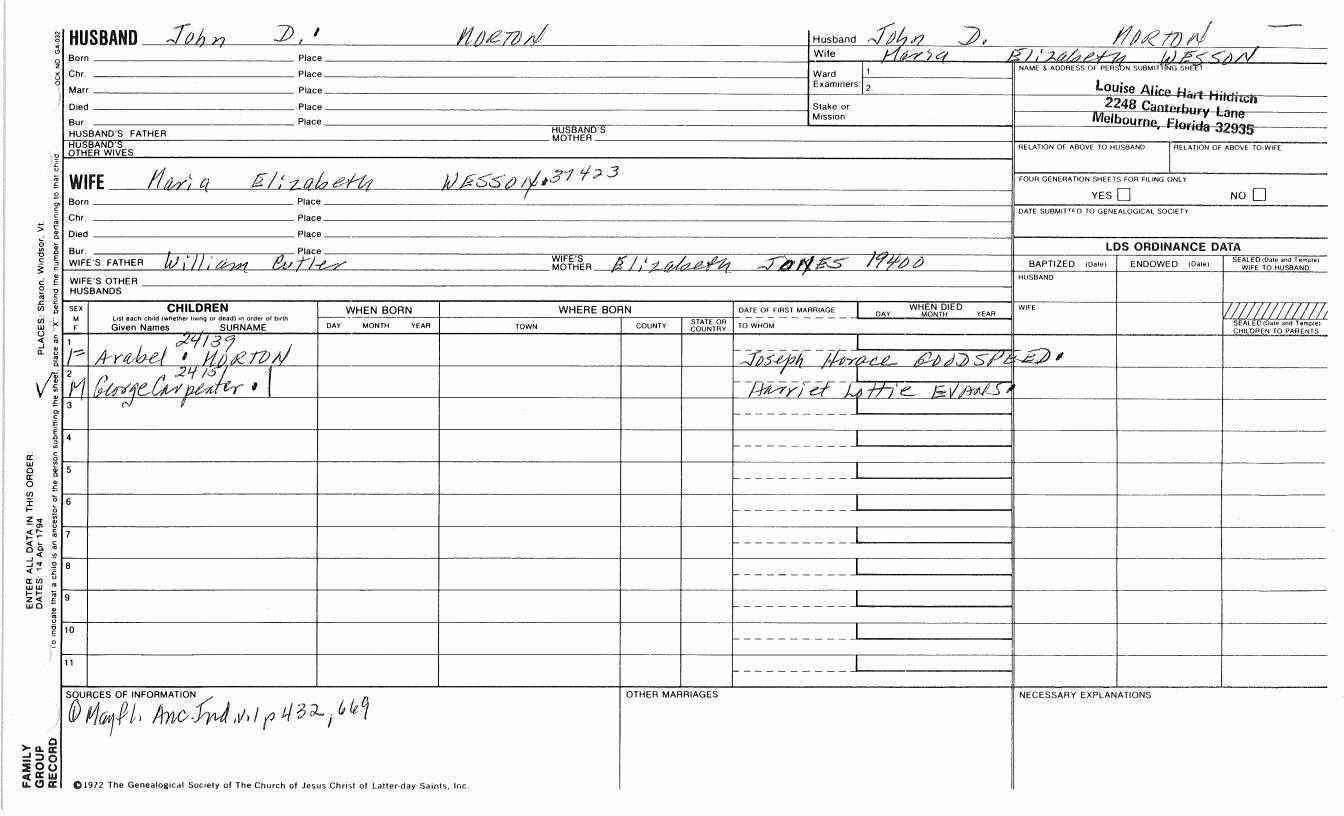 HUSBAND John D. MORTON
Born Place
Chr. Place
Marr. Place
Died Place
Bur. Place
HUSBAND'S FATHER HUSBAND'S MOTHER
HUSBAND'S OTHER WIVES
Husband John D. MORTON
Wife Maria Elizabeth WESSON
Ward Examiners: 1 2
Stake or Mission
NAME & ADDRESS OF PERSON SUBMITTING SHEET
Louise Alice Hart Hilditch
2248 Canterbury Lane
Melbourne, Florida 32935
RELATION OF ABOVE TO HUSBAND RELATION OF ABOVE TO WIFE
FOUR GENERATION SHEETS FOR FILING ONLY
YES NO
DATE SUBMITTED TO GENEALOGICAL SOCIETY
WIFE Maria Elizabeth WESSON 37423
Born Place
Chr. Place
Died Place
Bur. Place
WIFE'S FATHER William Cutler WIFE'S MOTHER Elizabeth JONES 19400
WIFE'S OTHER HUSBANDS
LDS ORDINANCE DATA
BAPTIZED (Date) ENDOWED (Date) SEALED (Date and Temple) WIFE TO HUSBAND
HUSBAND
WIFE
SEALED (Date and Temple) CHILDREN TO PARENTS
SEX M F
CHILDREN
List each child (whether living or dead) in order of birth
Given Names SURNAME
WHEN BORN
DAY MONTH YEAR
WHERE BORN
TOWN COUNTY STATE OR COUNTRY
DATE OF FIRST MARRIAGE
TO WHOM
WHEN DIED
DAY MONTH YEAR
24139
1 F Arabel MORTON Joseph Horace GOODSPEED
24151
2 M George Carpenter Harriet Lottie EVANS
3
4
5
6
7
8
9
10
11
SOURCES OF INFORMATION
① Mayfl. Anc. Ind. v.1 p 432, 669
OTHER MARRIAGES
NECESSARY EXPLANATIONS
©1972 The Genealogical Society of The Church of Jesus Christ of Latter-day Saints, Inc.
FAMILY GROUP RECORD
ENTER ALL DATA IN THIS ORDER:
DATES 14 Apr 1794
PLACES: Sharon, Windsor, Vt.
To indicate that a child is an ancestor of the person submitting the sheet, place an "X" behind the number pertaining to that child
OCK NO. GA-032